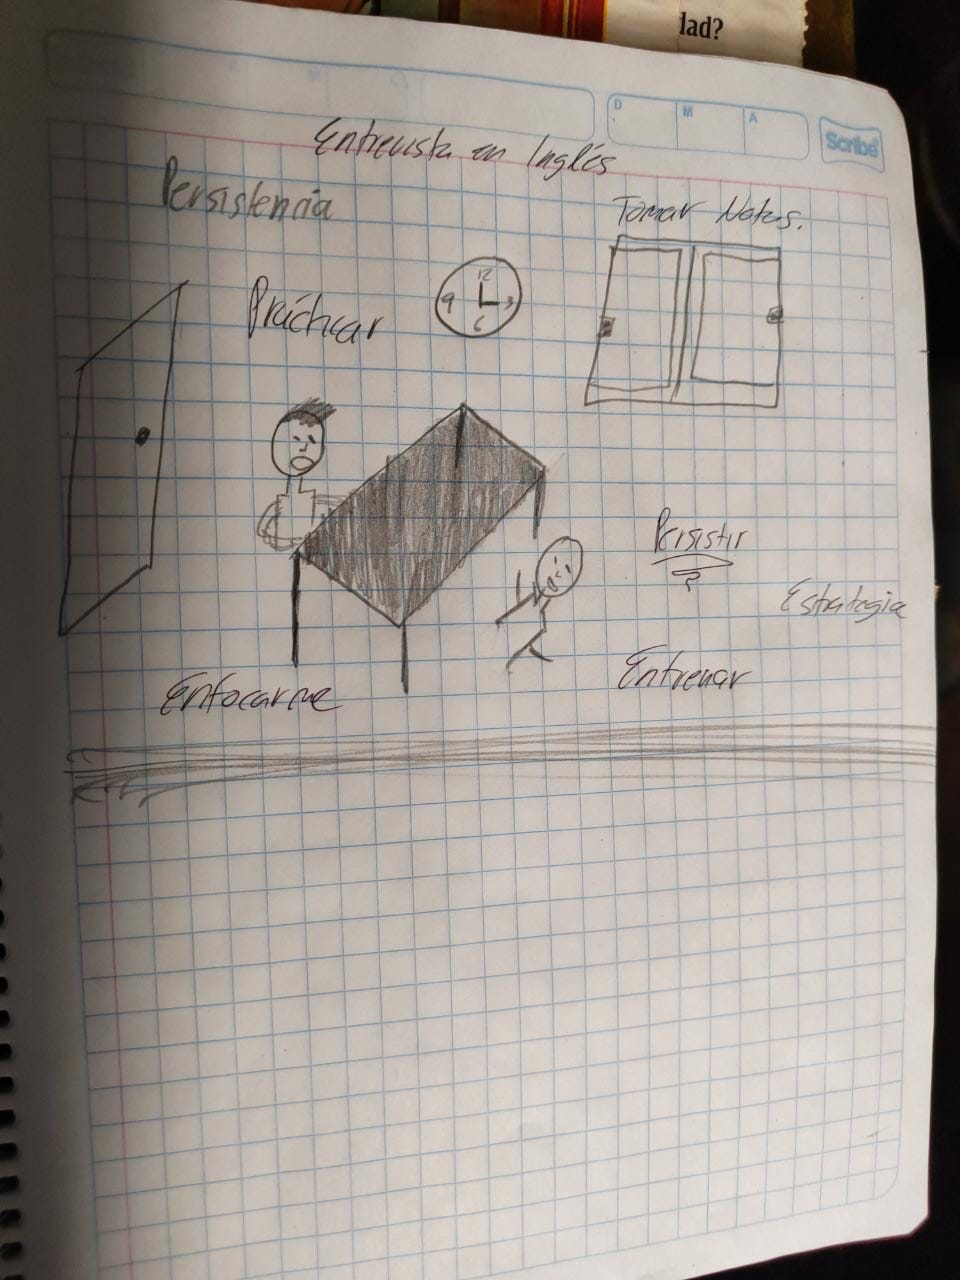 dad?
D M A
Scribe
Entrevista en Inglés
Persistencia
Tomar Notas.
Practicar
12
9 3
6
Persistir
Estrategia
Entrenar
Enfocarme